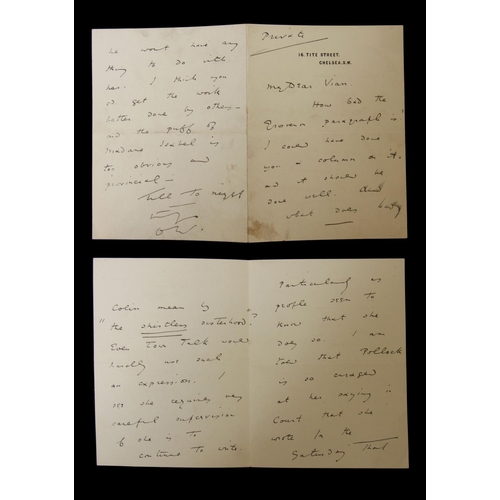 Private
16, TITE STREET,
CHELSEA, S.W.
My Dear Vian,
How bad the
Grosvenor paragraph is!
I could have done
you a column on it,
and it should be
done well. And
what does Lady
Colin mean by
"the shirtless sisterhood"?
Even Town Talk would
hardly use such
an expression. I
see she requires very
careful supervision
if she is to
continue to write.
Particularly as
people seem to
know that she
does so. I was
told that Pollock
is so enraged
at her saying in
Court that she
wrote in the
Saturday that
he wont have any
thing to do with
her. I think you
'd get the work
better done by others—
and the puff of
Madame Isabel is
too obvious and
provincial—
Till to night
O W.